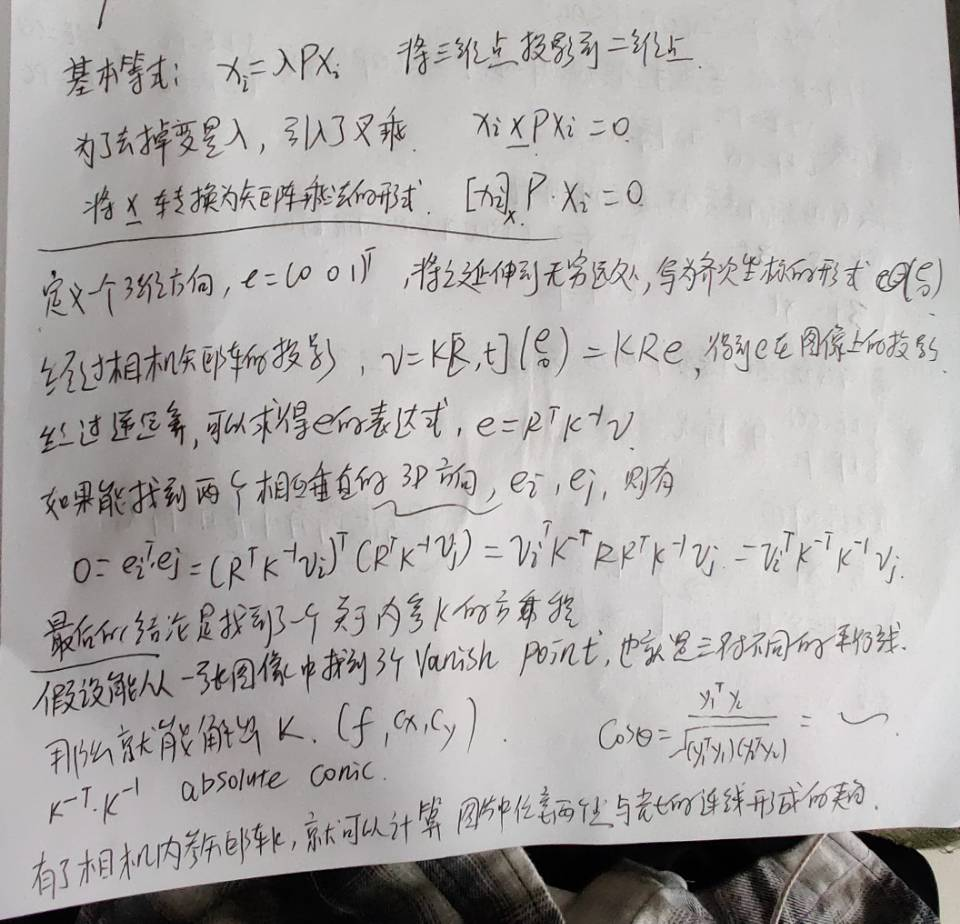 基本等式： xᵢ=λPXᵢ 将三维点投影到二维点.
为了去掉变量λ，引入了叉乘. xᵢ×PXᵢ=0.
将 × 转换为矩阵乘法的形式. [xᵢ]ₓP·Xᵢ=0
定义一个3维方向，e=(0 0 1)ᵀ，将之延伸到无穷远处，写为齐次坐标的形式 (e 0)
经过相机矩阵的投影，v=K[R,t](e 0)=KRe，得到e在图像上的投影.
经过逆运算，可以求得e的表达式，e=RᵀK⁻¹v
如果能找到两个相互垂直的3D方向，eᵢ,eⱼ，则有
0=eᵢᵀ·eⱼ=(RᵀK⁻¹vᵢ)ᵀ(RᵀK⁻¹vⱼ)=vᵢᵀK⁻ᵀRRᵀK⁻¹vⱼ=vᵢᵀK⁻ᵀK⁻¹vⱼ.
最后的结论是找到了一个关于内参K的方程
假设能从一张图像中找到3个Vanish Point，也就是三对不同的平行线.
那么就能解出K. (f,cx,cy)
cosθ=y₁ᵀy₂/√(y₁ᵀy₁)(y₂ᵀy₂)=
K⁻ᵀ·K⁻¹ absolute conic.
有了相机内参矩阵K，就可以计算图片中任意两个点与光心的连线形成的夹角.